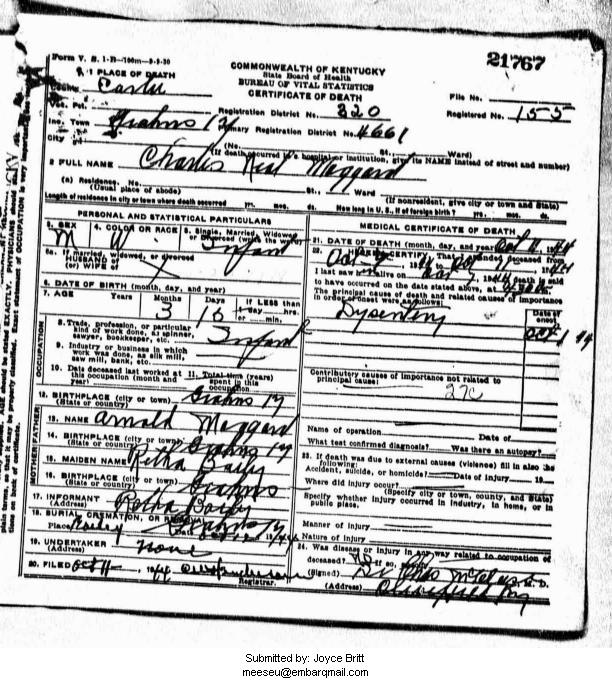 21767
Form V. S. 1-B—100m—9-9-30
COMMONWEALTH OF KENTUCKY
State Board of Health
BUREAU OF VITAL STATISTICS
CERTIFICATE OF DEATH
1 PLACE OF DEATH
County Carter
File No.
Vot. Pct. Registration District No. 320
Registered No. 155
Inc. Town Grahns Ky Primary Registration District No. 4661
City (No. St., Ward)
(If death occurred in a hospital or institution, give its NAME instead of street and number)
2 FULL NAME Charles Neal Maggard
(a) Residence. No. St., Ward
(Usual place of abode) (If nonresident, give city or town and State)
Length of residence in city or town where death occurred yrs. mos. ds. How long in U. S., if of foreign birth? yrs. mos. ds.
PERSONAL AND STATISTICAL PARTICULARS
3. SEX 4. COLOR OR RACE 5. Single, Married, Widowed, or Divorced (write the word)
M W Infant
5a. If married, widowed, or divorced
HUSBAND of
(or) WIFE of X
6. DATE OF BIRTH (month, day, and year)
7. AGE Years Months Days If LESS than
1 day hrs.
or min.
3 10
OCCUPATION
8. Trade, profession, or particular
kind of work done, as spinner,
sawyer, bookkeeper, etc. Infant
9. Industry or business in which
work was done, as silk mill,
saw mill, bank, etc.
10. Date deceased last worked at
this occupation (month and
year)
11. Total time (years)
spent in this
occupation
12. BIRTHPLACE (city or town) Grahns Ky
(State or country)
FATHER
13. NAME Arnold Maggard
14. BIRTHPLACE (city or town) Grahns Ky
(State or country)
MOTHER
15. MAIDEN NAME Retha
16. BIRTHPLACE (city or town) Grahns
(State or country)
17. INFORMANT Retha
(Address)
18. BURIAL, CREMATION, OR REMOVAL
Place Grahns Ky
19. UNDERTAKER none
(Address)
20. FILED Oct 11 1944
Registrar.
MEDICAL CERTIFICATE OF DEATH
21. DATE OF DEATH (month, day, and year) Oct 11 1944
22. I HEREBY CERTIFY, That I attended deceased from
Oct
I last saw h alive on death is said
to have occurred on the date stated above, at
The principal cause of death and related causes of importance
in order of onset were as follows:
Date of
onset
Dysentery Oct 1 44
Contributory causes of importance not related to
principal cause:
27c
Name of operation Date of
What test confirmed diagnosis? Was there an autopsy?
23. If death was due to external causes (violence) fill in also the
following:
Accident, suicide, or homicide? Date of injury 19
Where did injury occur?
(Specify city or town, county, and State)
Specify whether injury occurred in industry, in home, or in
public place.
Manner of injury
Nature of injury
24. Was disease or injury in any way related to occupation of
deceased? If so, specify
(Signed) Dr M. D.
(Address) Ky
Submitted by: Joyce Britt
meeseu@embarqmail.com